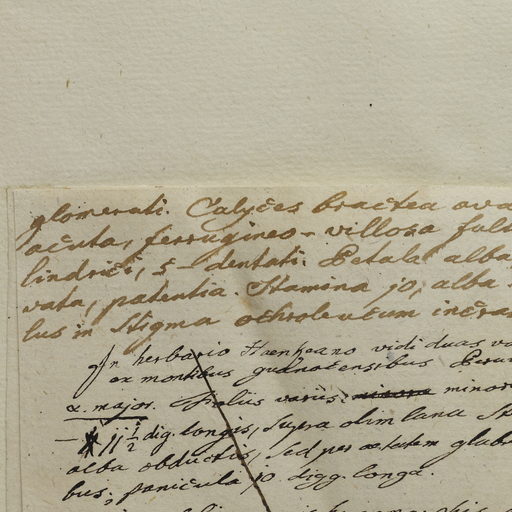 glomerati. Calyces bractea ova
acuta, ferrugineo-villosa fult
lindrici, 5-dentati. Petala alba,
vata, patentia. Stamina 10, alba
lus in Stigma ochroleucum incras
In herbario Haenkeano vidi duas va
ex montibus guanocensibus Peru
α. major. foliis variis minor
- 11½ dig. longis, supra olim lana
alba obductis, sed per aetatem glab
bus, panicula 10 digg. longa.